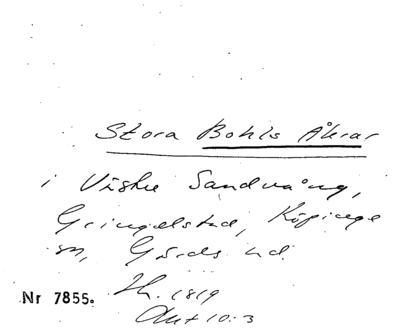 Stora Bohls Åkrar
i Västra Sandvång,
Gringelstad, Köpinge
sn, Gärds hd.
Nr 7855. Sk. 1819
Akt 10:3